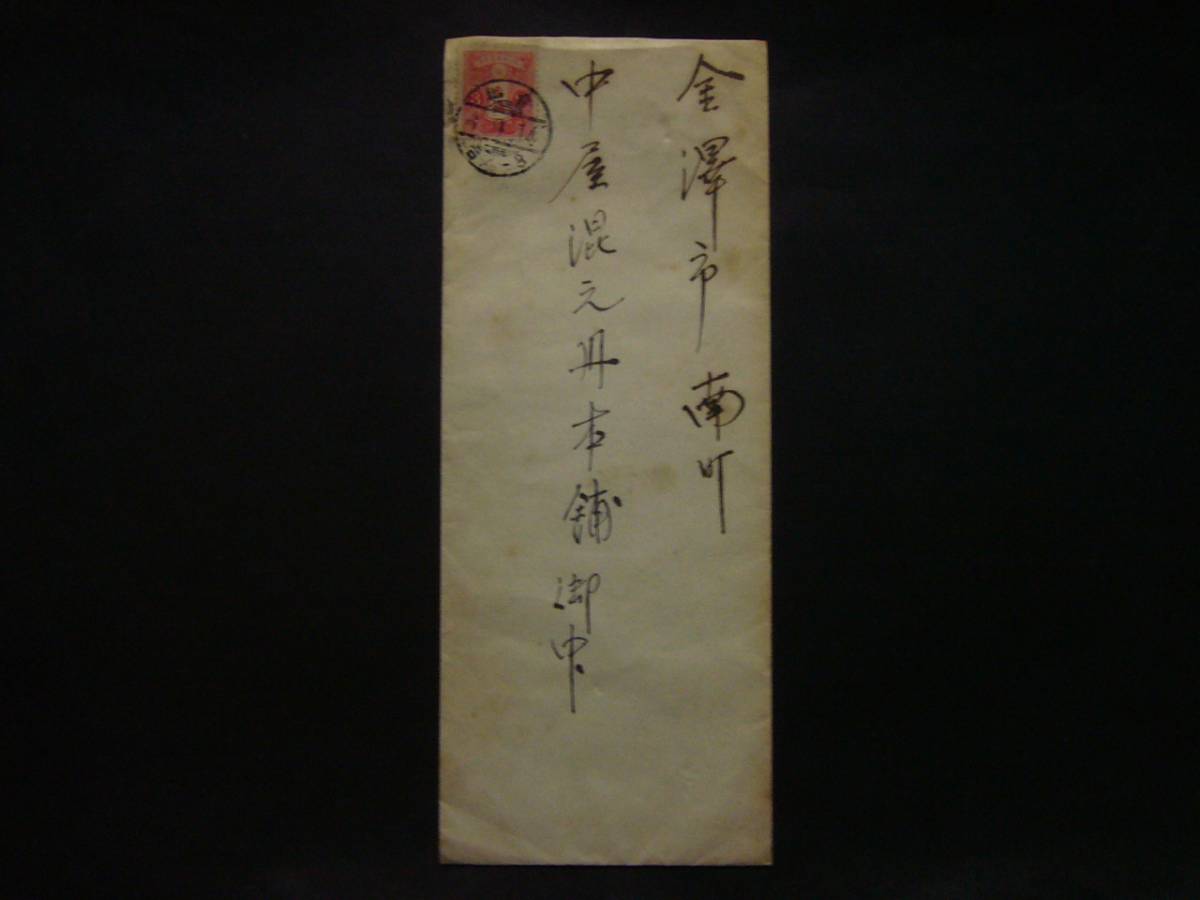 金澤市南町
中屋混元丹本舗御中